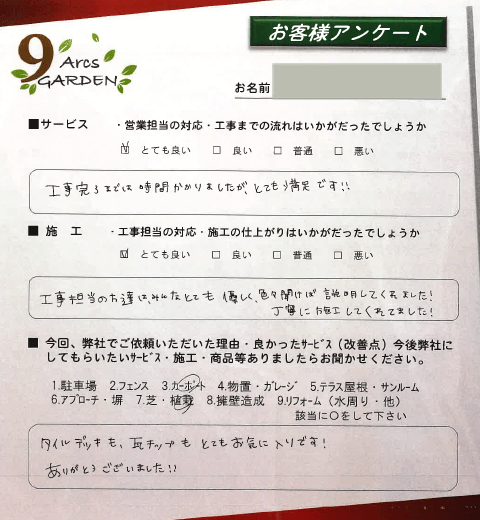 9 Arcs GARDEN
お客様アンケート
お名前
■サービス ・営業担当の対応・工事までの流れはいかがだったでしょうか
☑ とても良い □ 良い □ 普通 □ 悪い
工事完了までは時間かかりましたが、とても満足です!!
■ 施 工 ・工事担当の対応・施工の仕上がりはいかがだったでしょうか
☑ とても良い □ 良い □ 普通 □ 悪い
工事担当の方達は、みんなとても優しく、色々聞けば説明してくれました!
丁寧に施工してくれてました!
■ 今回、弊社でご依頼いただいた理由・良かったサービス(改善点)今後弊社に
してもらいたいサービス・施工・商品等ありましたらお聞かせください。
1.駐車場 2.フェンス 3.カーポート 4.物置・ガレージ 5.テラス屋根・サンルーム
6.アプローチ・塀 7.芝・植栽 8.擁壁造成 9.リフォーム(水周り・他)
該当に〇をして下さい
タイルデッキも、瓦チップもとてもお気に入りです!
ありがとうございました!!